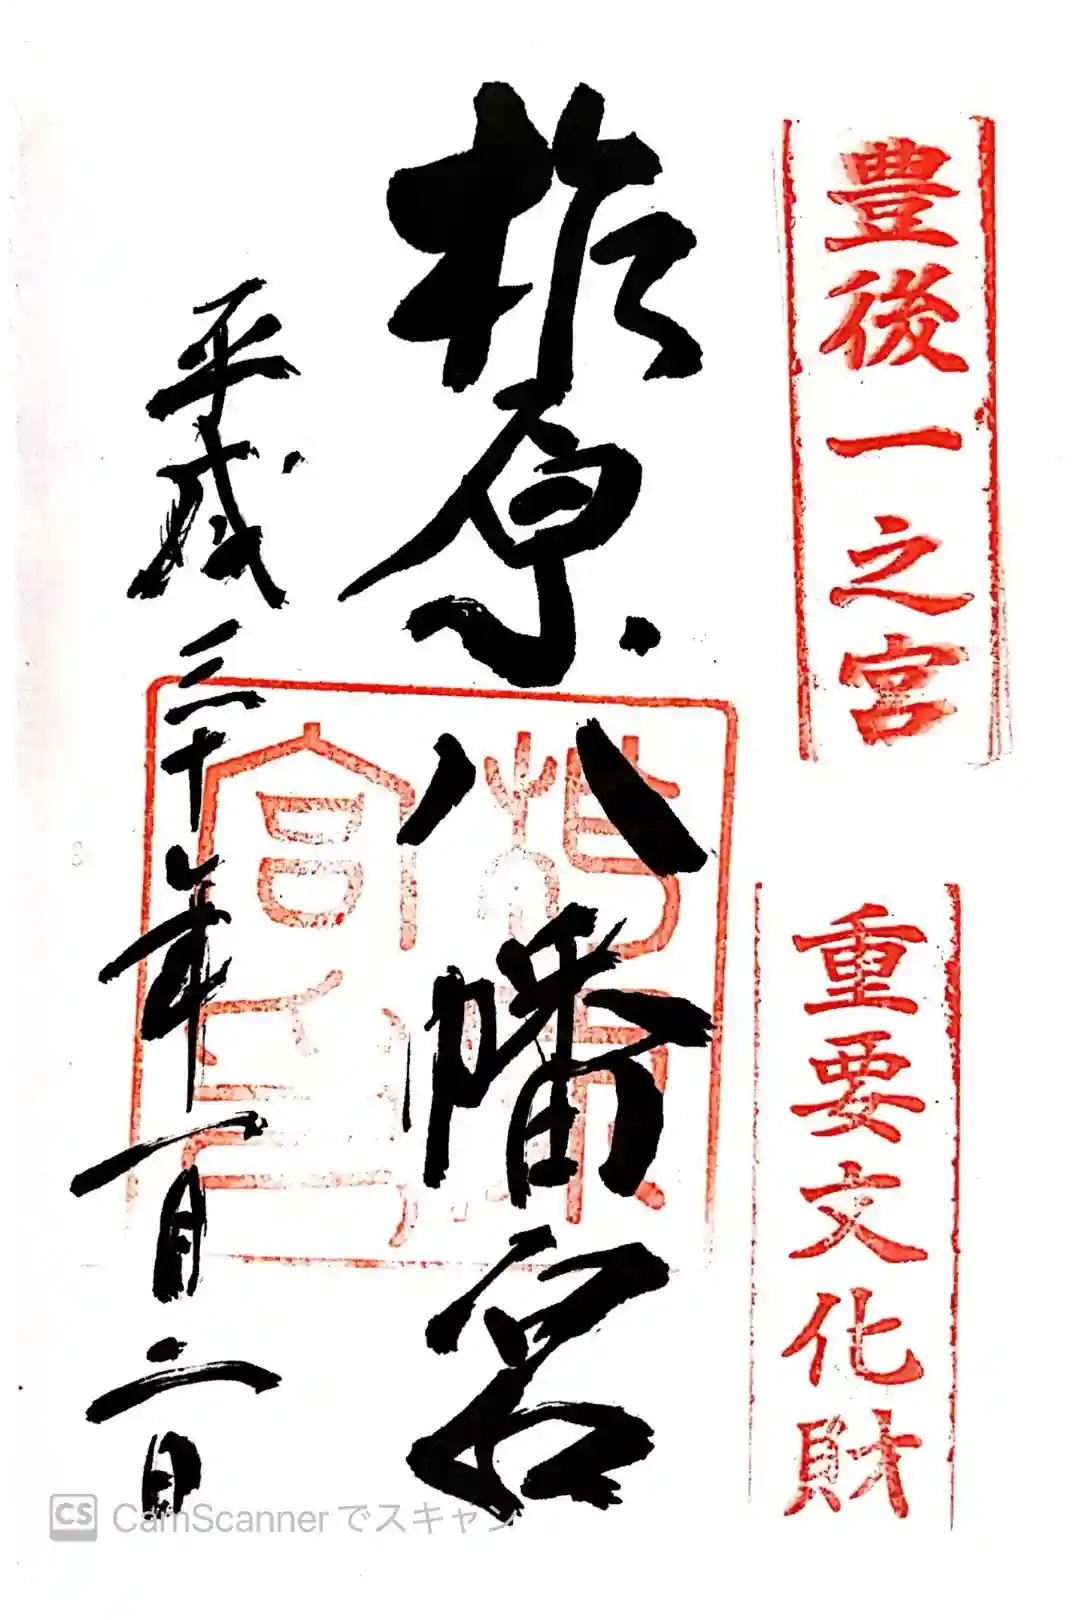 豊後一之宮
重要文化財
柞原八幡宮
平成三十年一月二日
CS CamScanner でスキャン